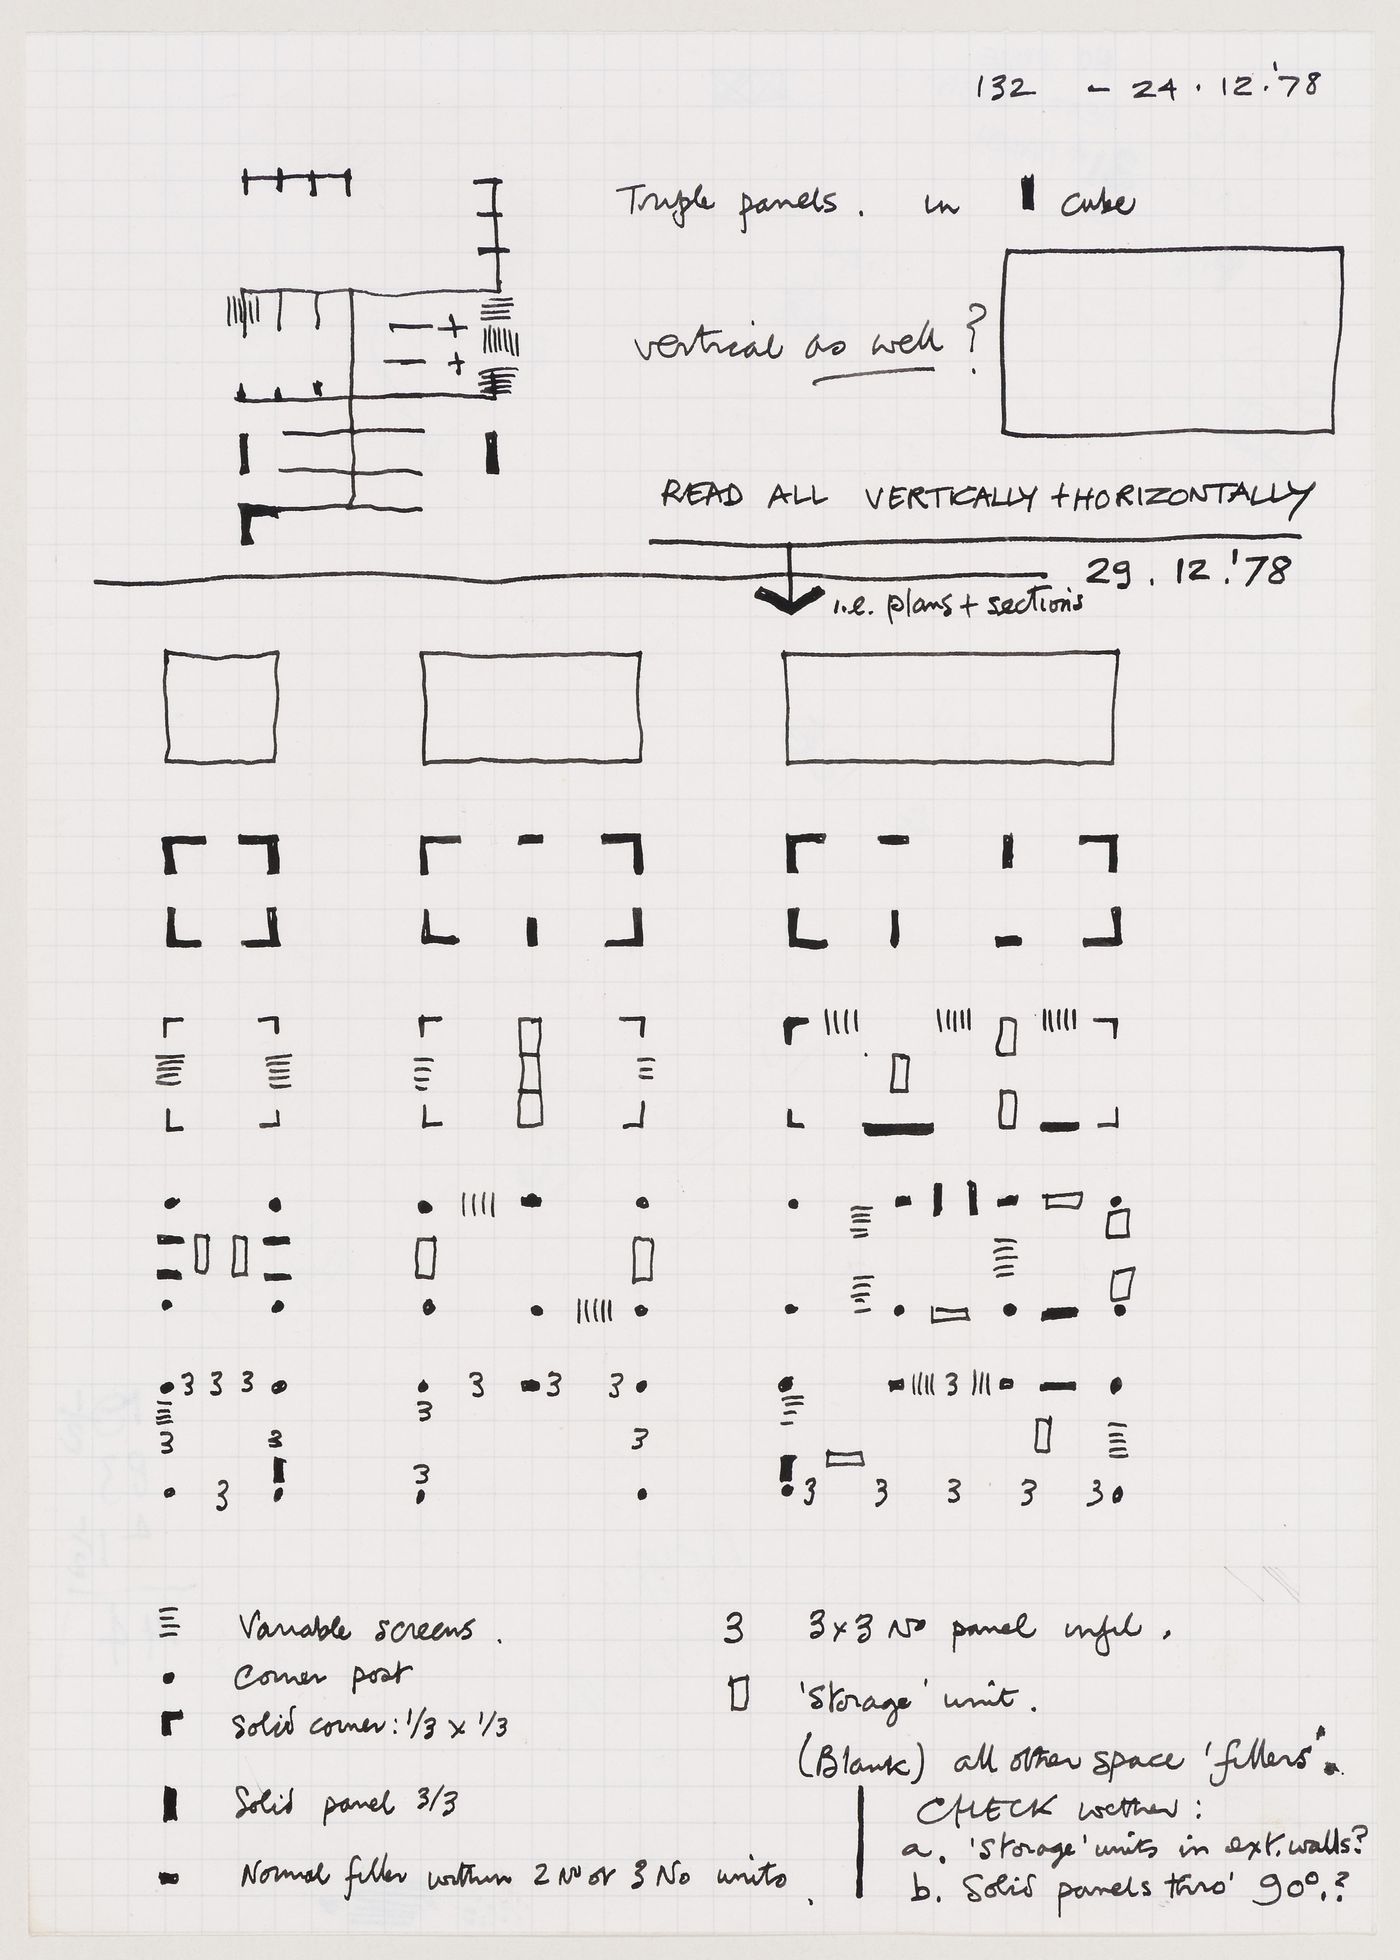 132 - 24.12.'78
Triple panels. in cube
vertical as well ?
READ ALL VERTICALLY + HORIZONTALLY
29.12.'78
i.e. plans + sections
3 3 3 3 3 3 3
3
3 3 3
3
3 3 3 3 3 3
Variable screens.
Corner post
Solid corner: 1/3 x 1/3
Solid panel 3/3
Normal filler within 2 No or 3 No units.
3 3x3 No panel infil.
'Storage' unit.
(Blank) all other space 'fillers'.
CHECK wether:
a. 'Storage' units in ext. walls?
b. Solid panels thro' 90°.?